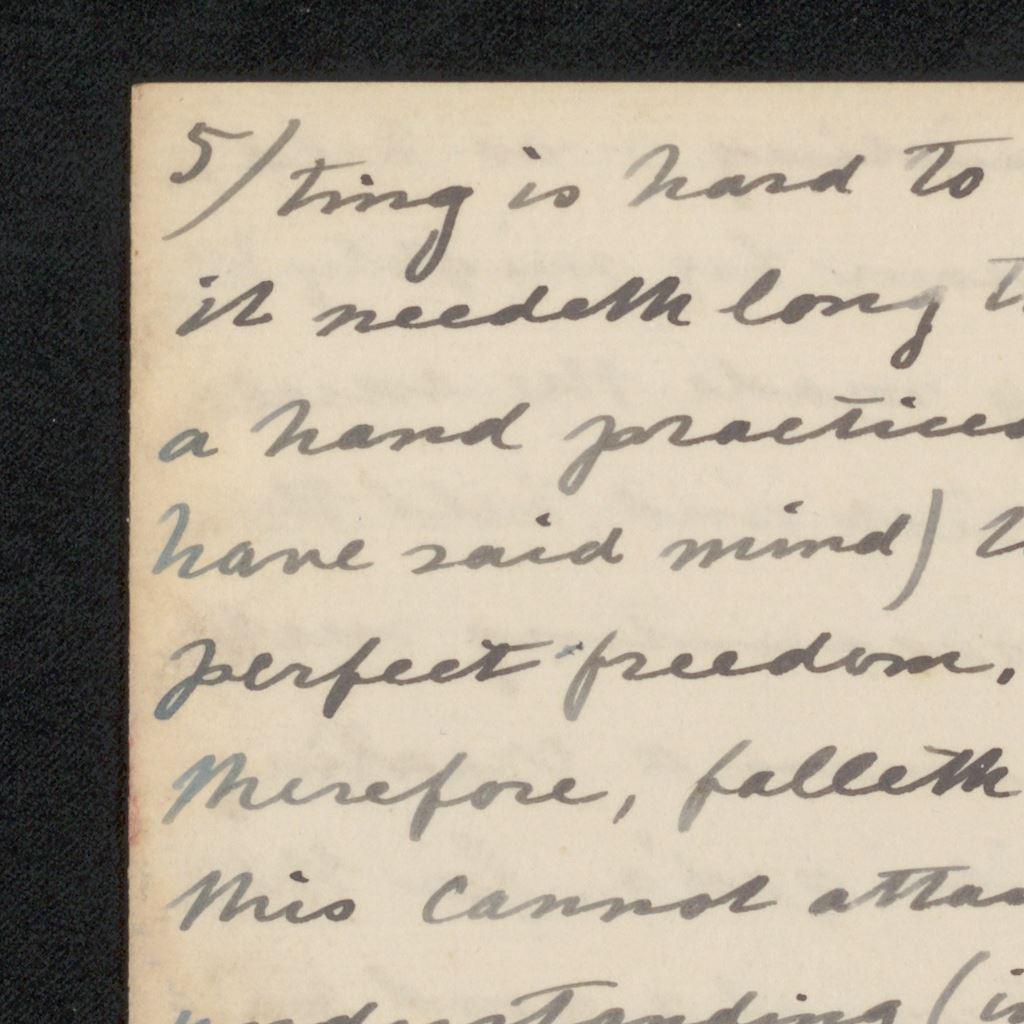 5/ ting is hard to
it needeth long
a hand practices
have said mind)
perfect freedom.
Therefore, falleth
this cannot attai
understanding (i